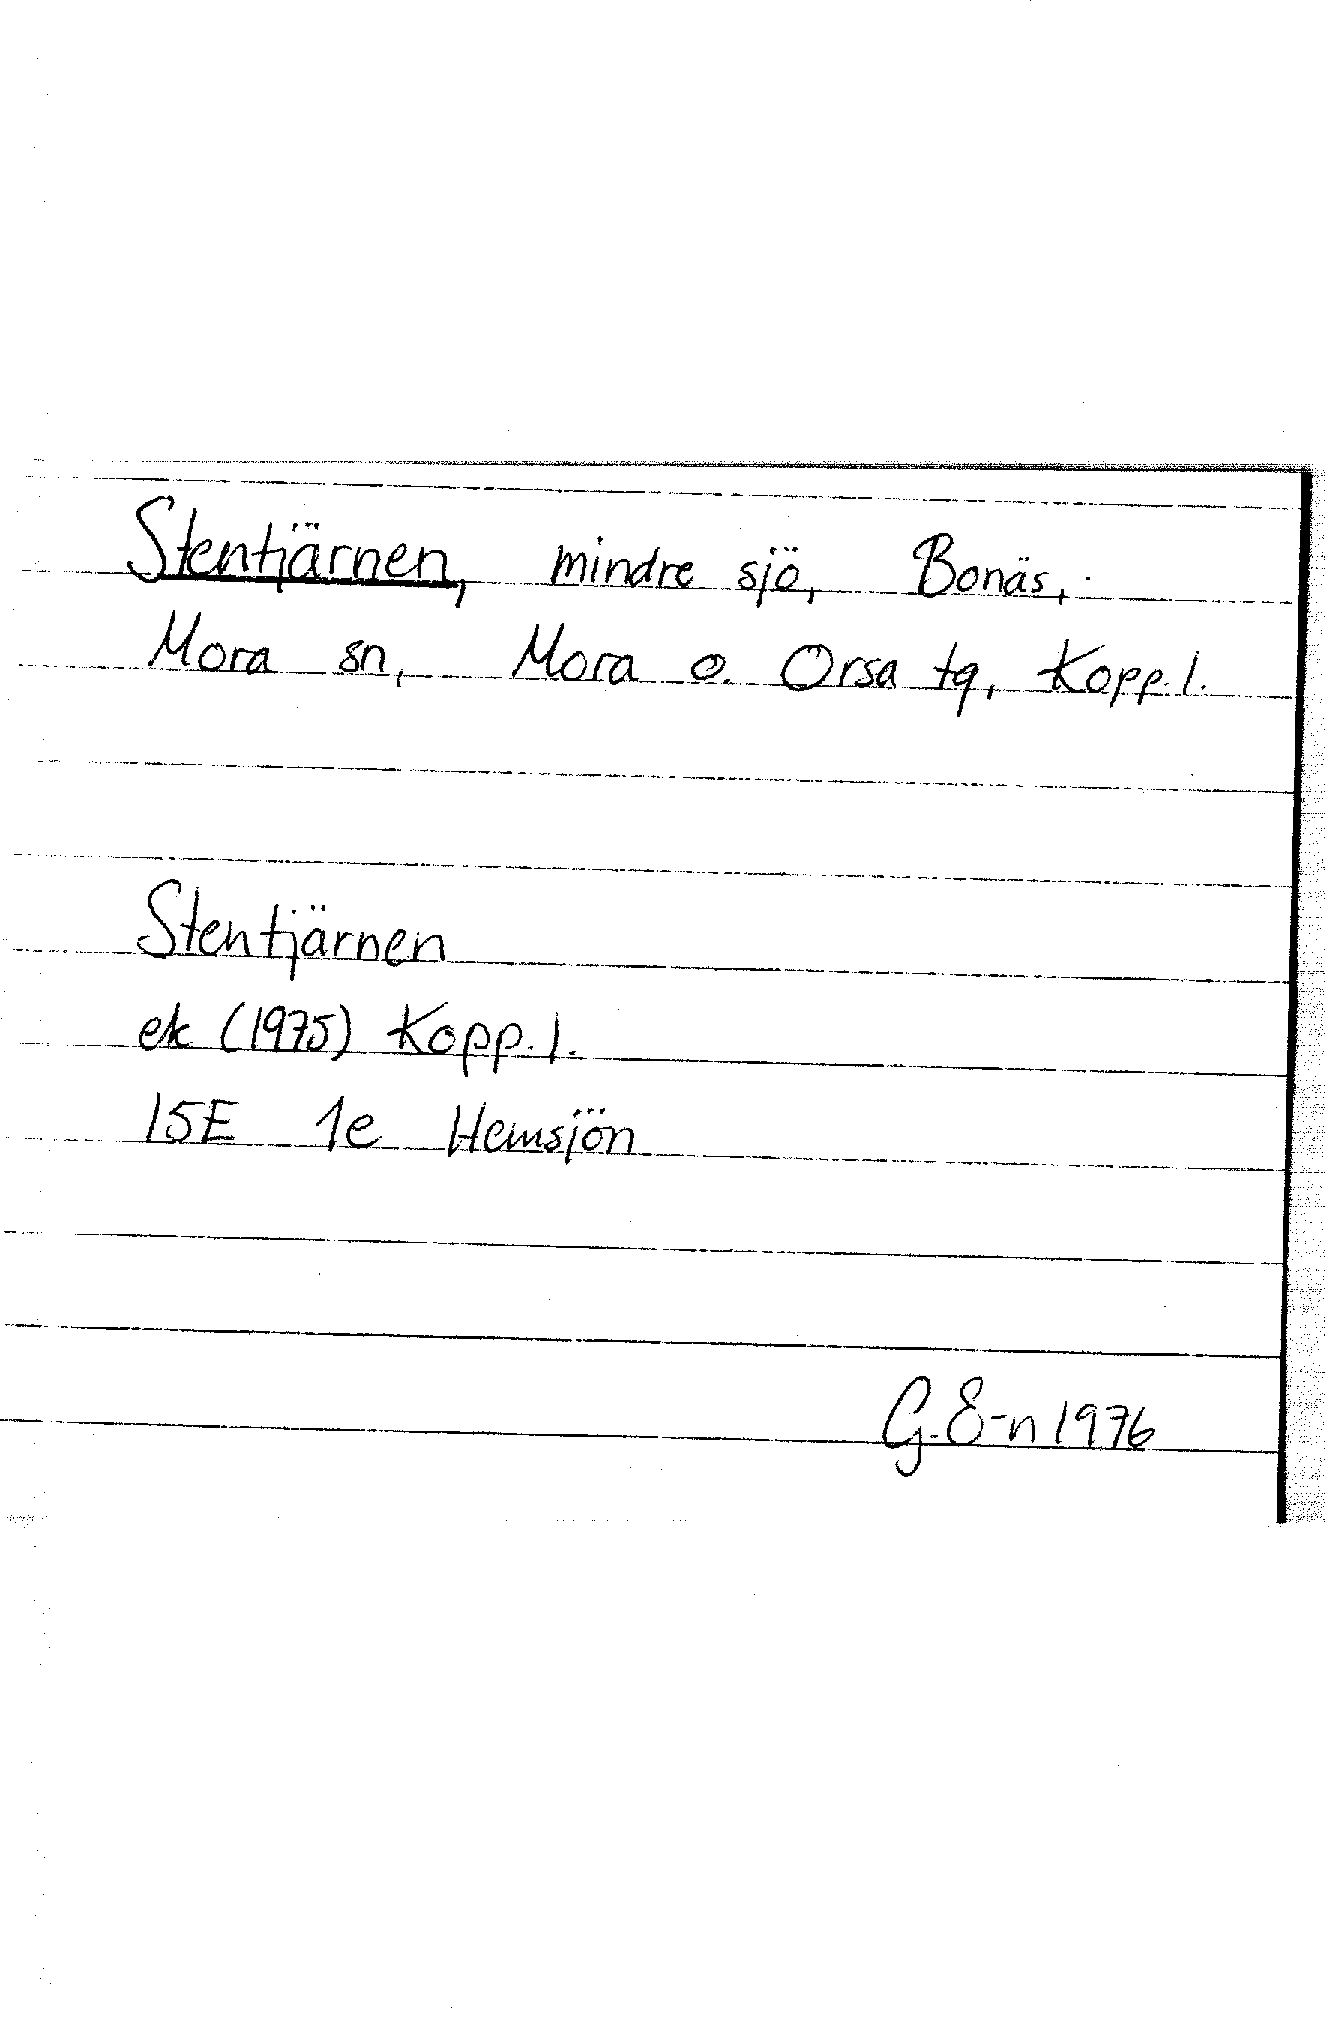 Stentjärnen, mindre sjö, Bonäs,
Mora sn, Mora o. Orsa tg, Kopp. l.
Stentjärnen
ek (1975) Kopp. l.
15E 1e Hemsjön
G. E-n 1976